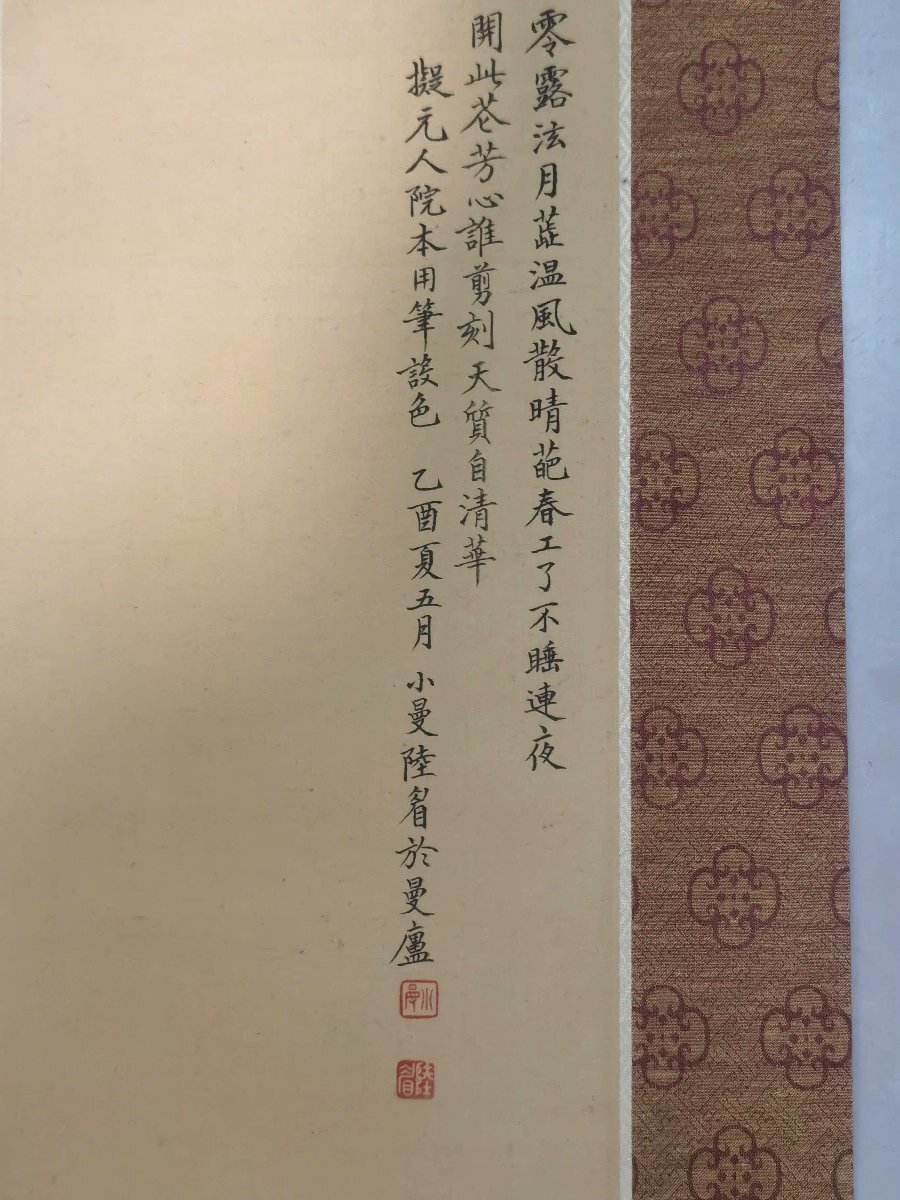 零露泫月蕋温風散晴葩春工了不睡連夜
開此芲芳心誰剪刻天質自清華
擬元人院本用筆設色 乙酉夏五月 小曼陸眉於曼廬
小曼
陸眉